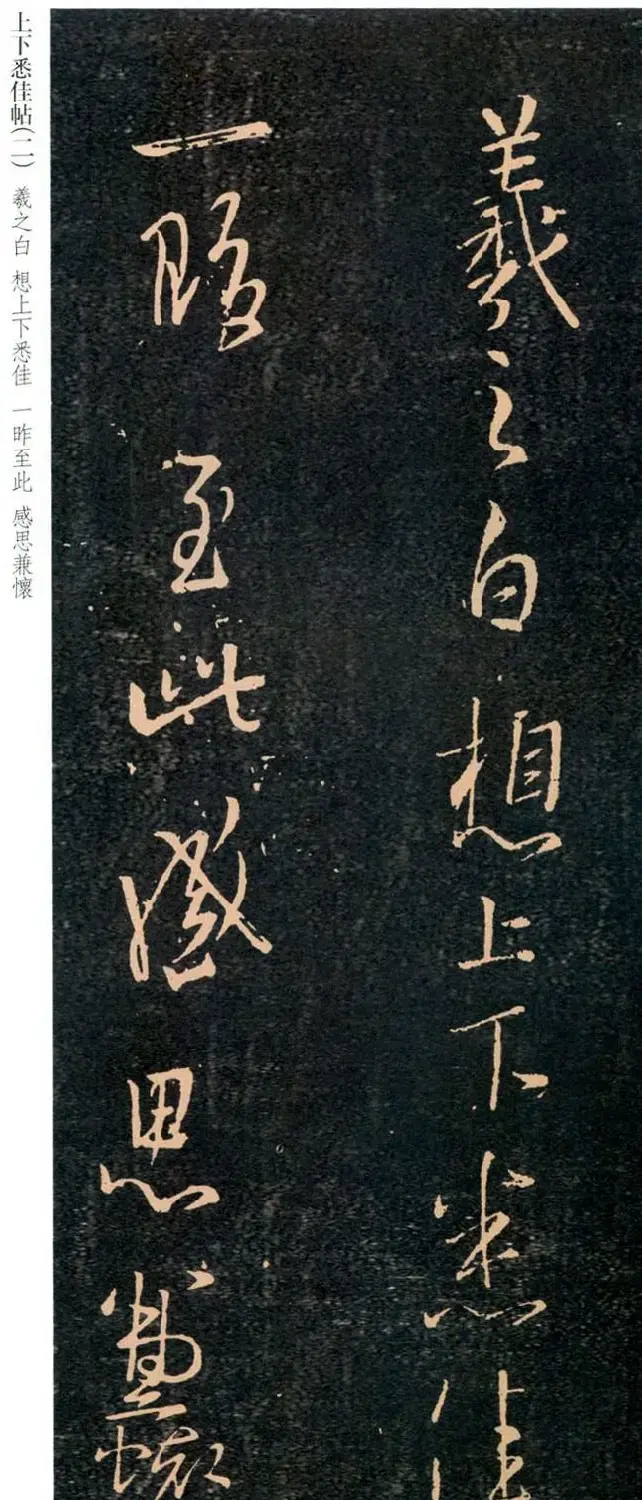 羲之白想上下悉佳
一至此感思
上下悉佳帖(二) 羲之白 想上下悉佳 一昨至此 感思兼懷